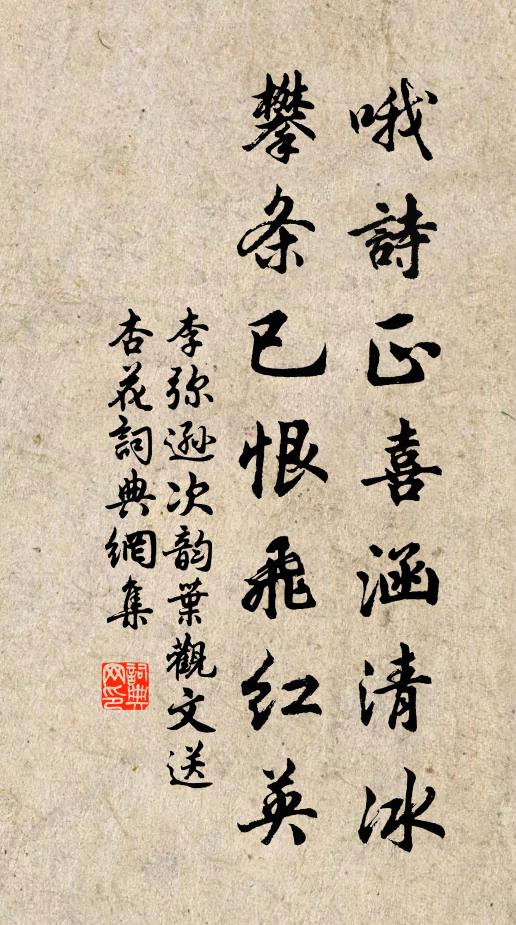 哦詩正喜涵清冰
攀条已恨飛红英
李弥遜次韵葉觀文送
杏花詞典網集
詞典网印